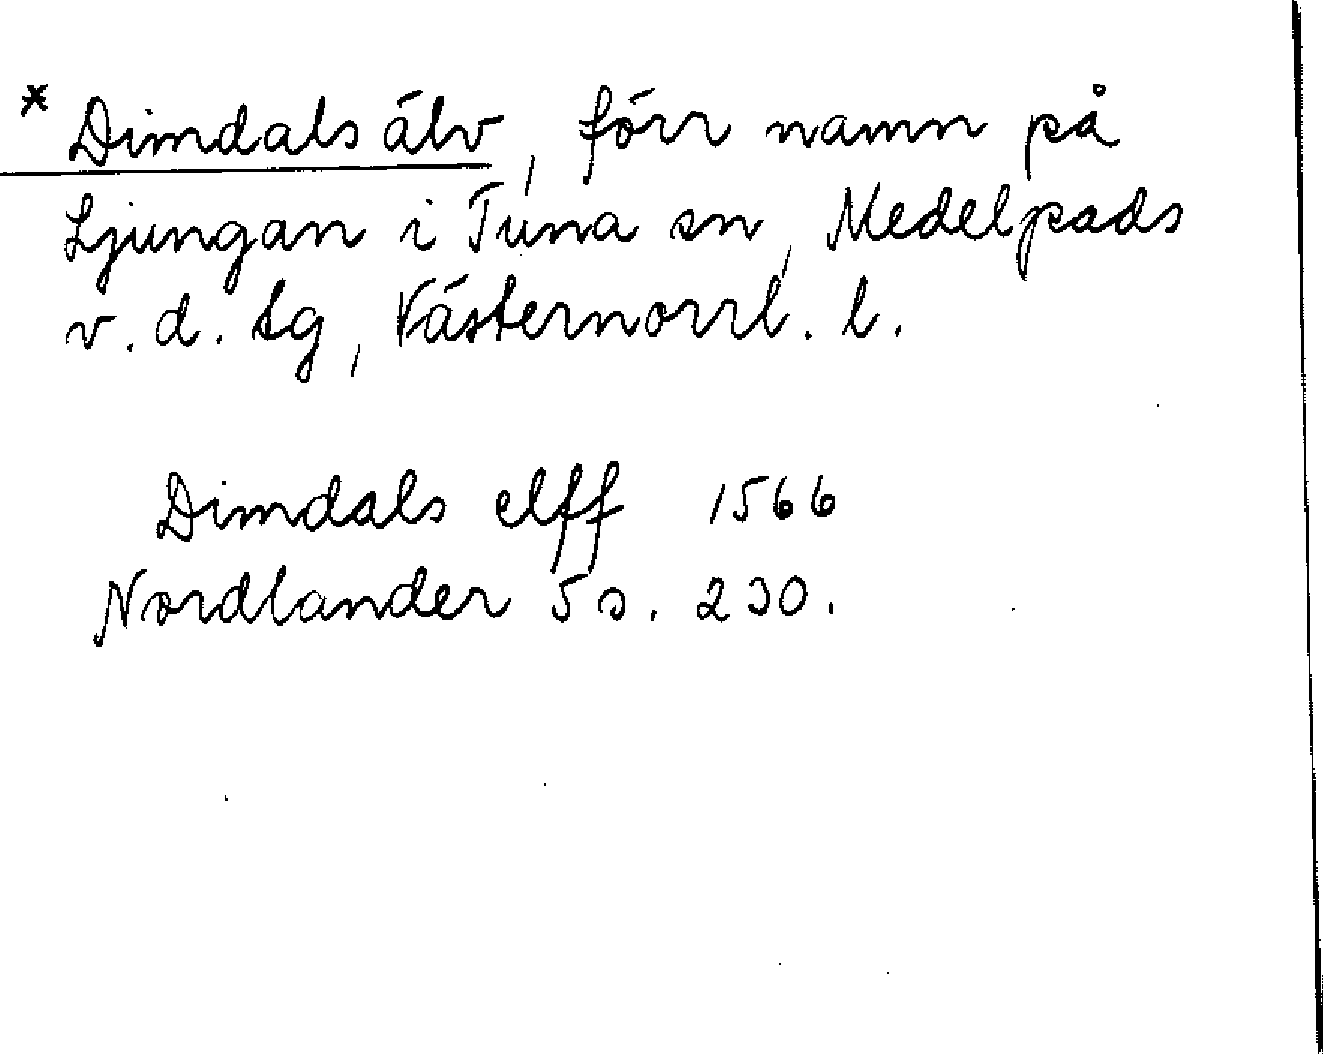 * Dimdals älv, förr namn på
Ljungan i Tuna sn, Medelpads
v. d. tg, Västernorrl. l.
Dimdals elff 1566
Nordlander 5 s. 230.